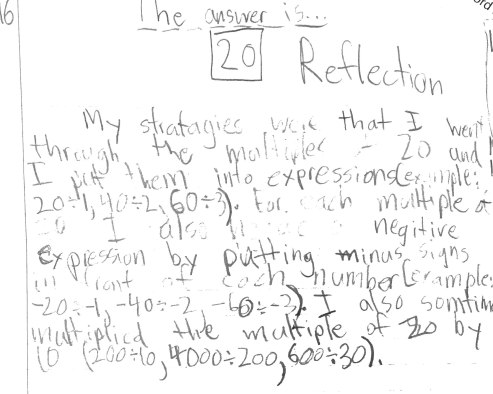 16
The answer is...
20 Reflection
My stratagies were that I went
through the multiples 20 and
I put them into expressions(example:
20÷1,40÷2,60÷3). For each multiple of
20 I also negitive
expression by putting minus signs
in front of each number(example:
-20÷-1,-40÷-2,-60÷-3). I also somtim
multiplied the multiple of 20 by
10 (200÷10,4000÷200,600÷30).